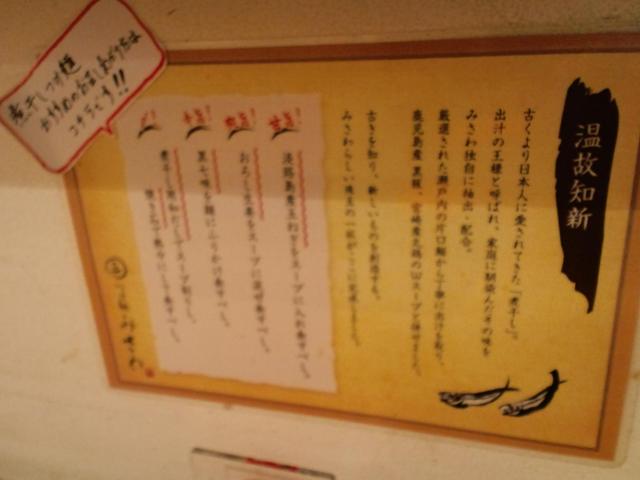 温故知新
古くより日本人に愛されてきた「煮干し」。
出汁の王様と呼ばれ、家庭に馴染んだその味を
みさわ独自に抽出・配合。
厳選された瀬戸内の片口鰯から丁寧に出汁を取り、
鹿児島産黒豚、宮崎産丸鶏のWスープと併せました。
古きを知り、新しいものを創造する。
みさわらしい
淡路島産玉ねぎをスープに入れ食すべし。
おろし生姜をスープに混ぜ食すべし。
黒七味を麺にふりかけ食すべし。
煮干し
スープ割りし、
食すべし。
煮干しつけ麺
おすすめのお召しあがり方は
コチラです!!